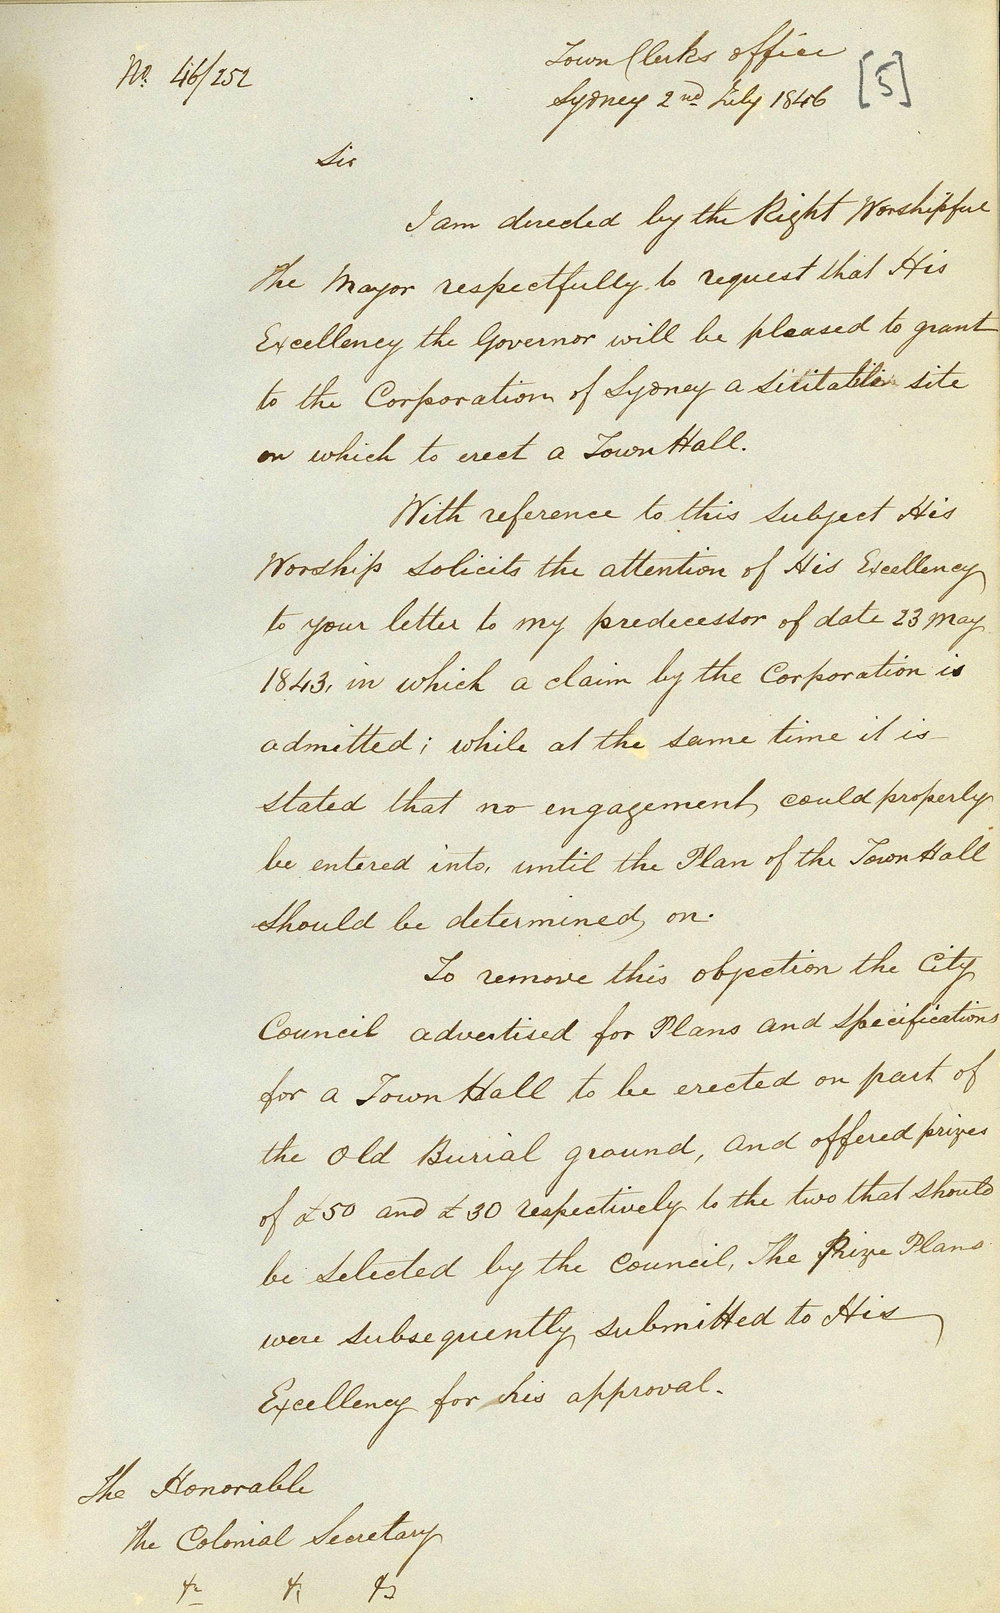 No. 46/252
Town Clerks Office
Sydney 2nd July 1846
[5]
Sir
I am directed by the Right Worshipful
the Mayor respectfully to request that His
Excellency the Governor will be pleased to grant
to the Corporation of Sydney a site
on which to erect a Town Hall.
With reference to this subject His
Worship solicits the attention of His Excellency
to your letter to my predecessor of date 23 May
1843, in which a claim by the Corporation is
admitted; while at the same time it is
stated that no engagement could properly
be entered into, until the Plan of the Town Hall
should be determined on.
To remove this objection the City
Council advertised for Plans and Specifications
for a Town Hall to be erected on part of
the Old Burial ground, and offered prizes
of £50 and £30 respectively to the two that should
be selected by the Council, The Prize Plans
were subsequently submitted to His
Excellency for his approval.
The Honorable
The Colonial Secretary
&c &c &c